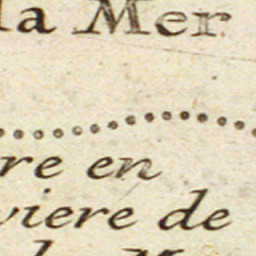 la Mer
re en
viere de